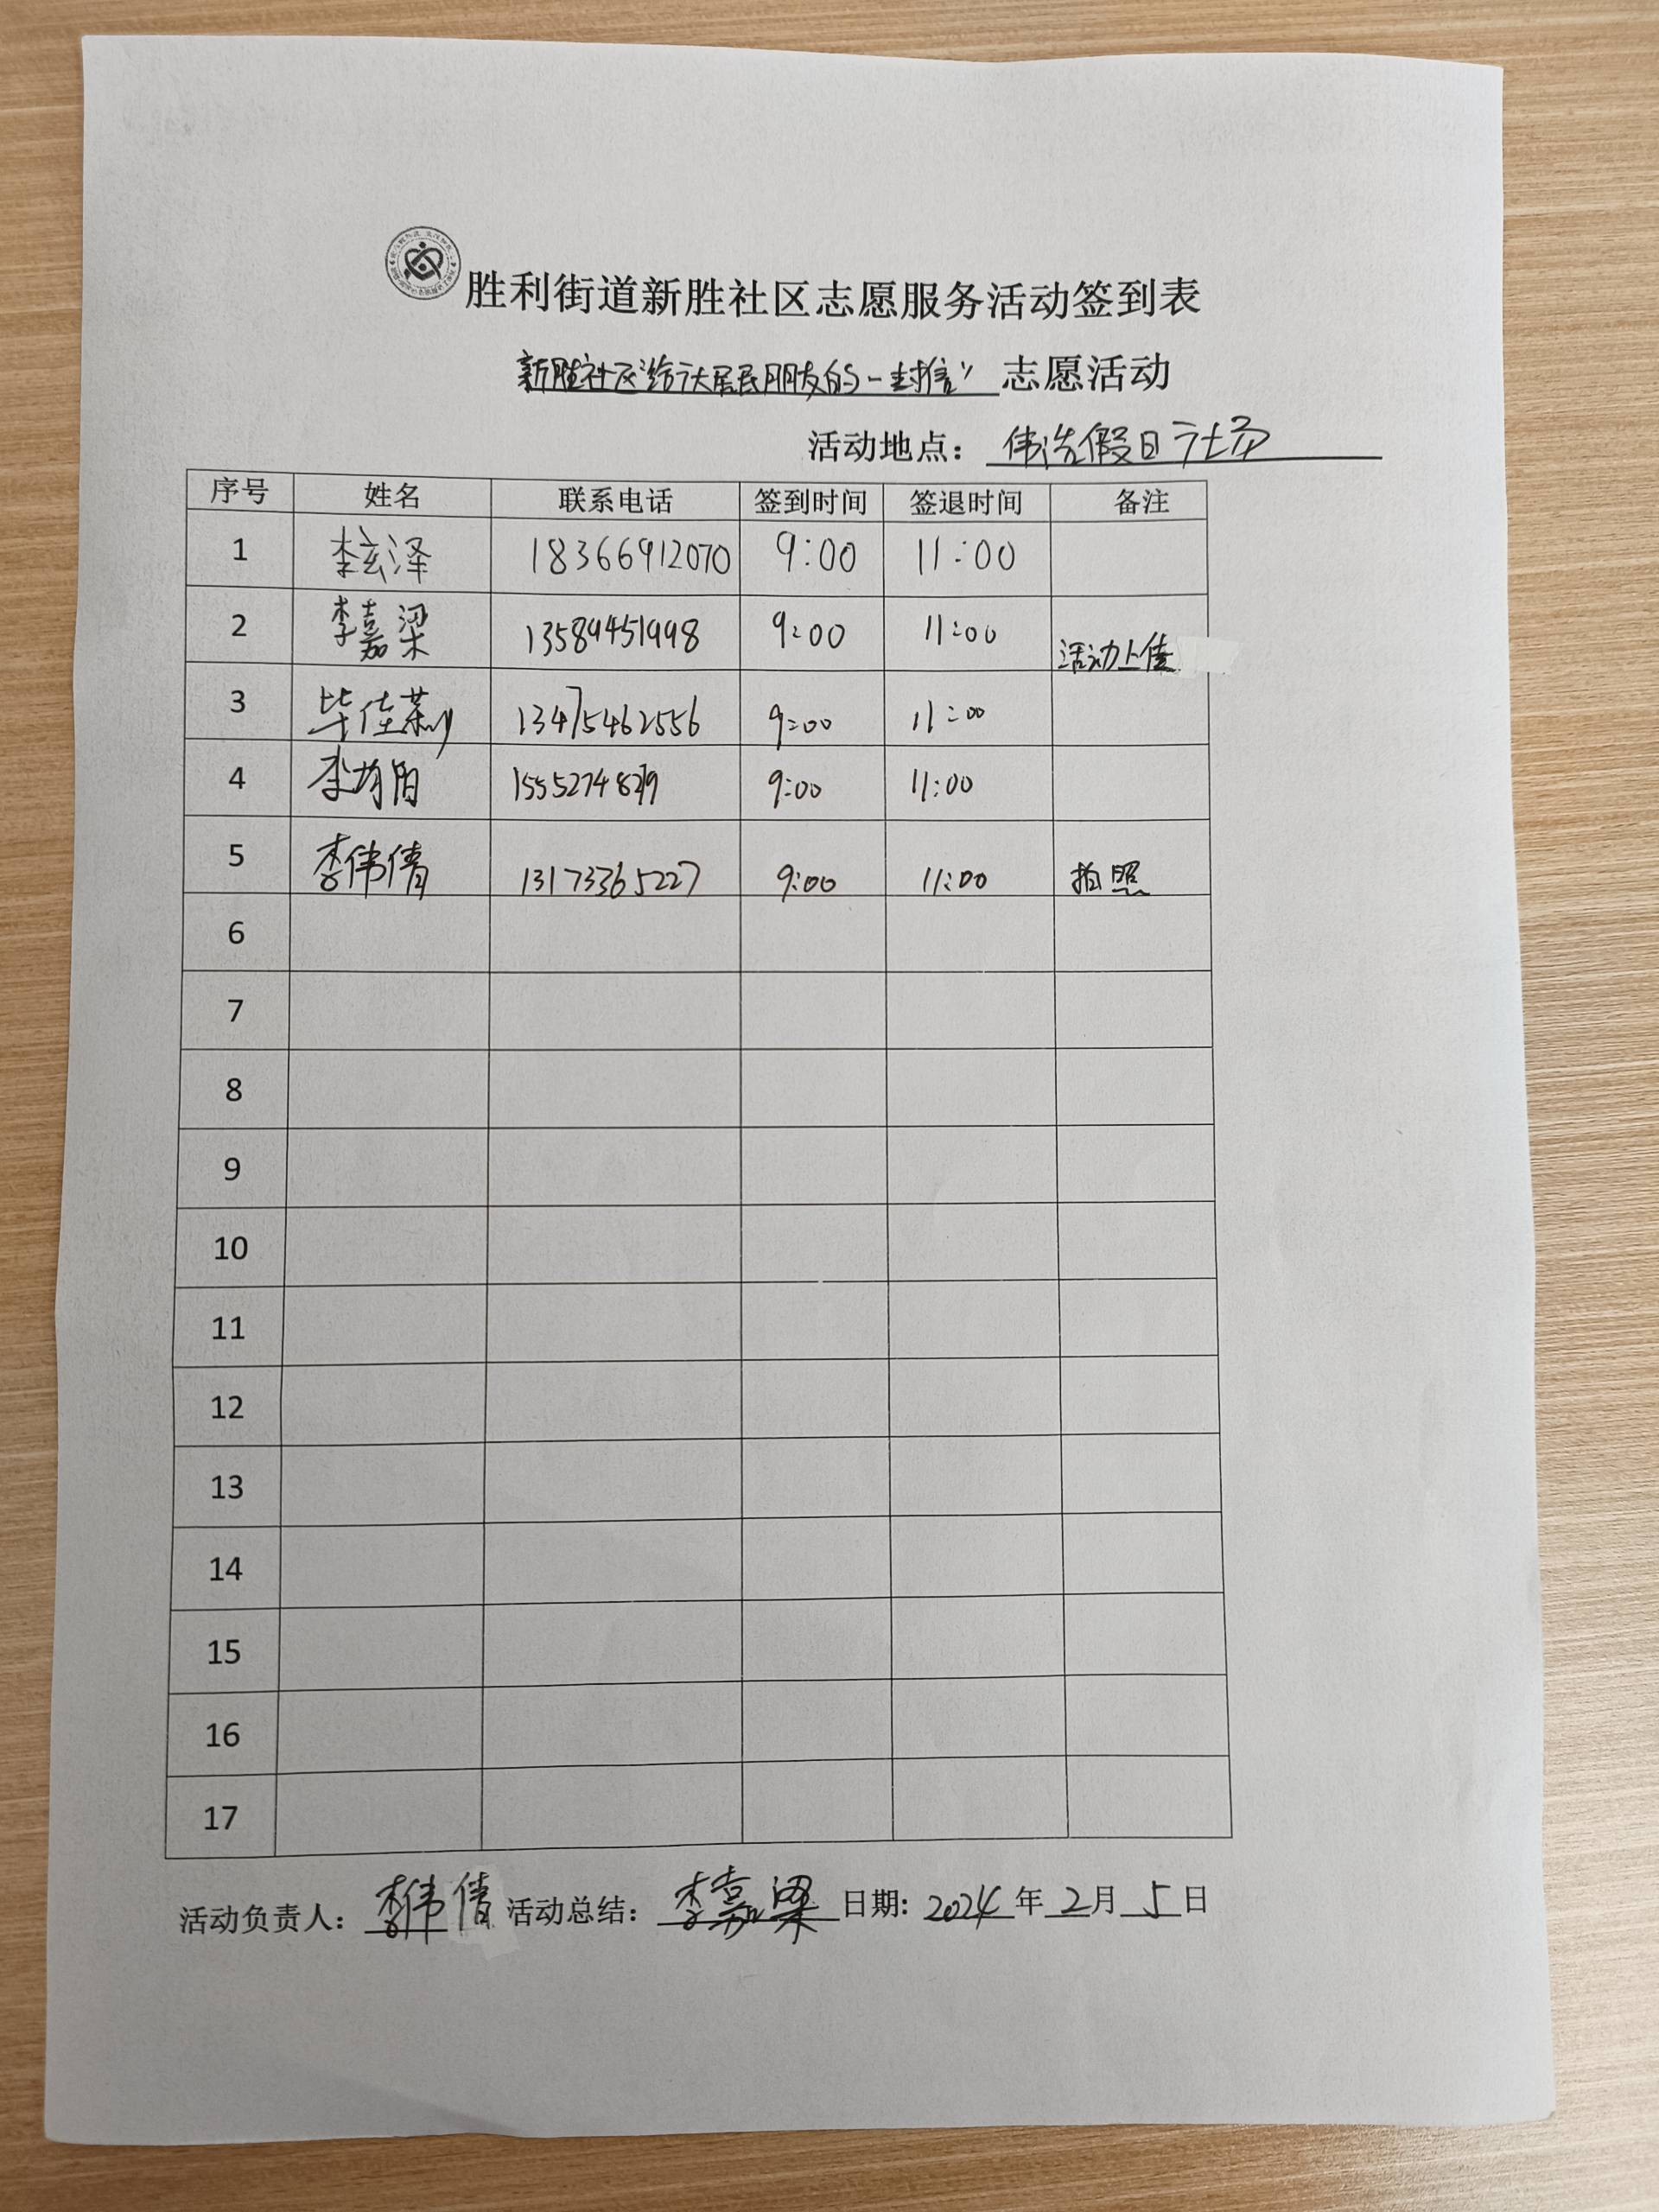 胜利街道新胜社区志愿服务活动签到表
新胜社区"给广大居民朋友的一封信" 志愿活动
活动地点: 伟浩假日广场
序号 姓名 联系电话 签到时间 签退时间 备注
1 李玄泽 18366912070 9:00 11:00
2 李嘉梁 13589451998 9:00 11:00 活动上传
3 毕佳 13475462556 9:00 11:00
4 李 9:00 11:00
5 李伟倩 13173365227 9:00 11:00 拍照
6
7
8
9
10
11
12
13
14
15
16
17
活动负责人: 李伟倩 活动总结: 李嘉梁 日期: 2024 年 2 月 5 日